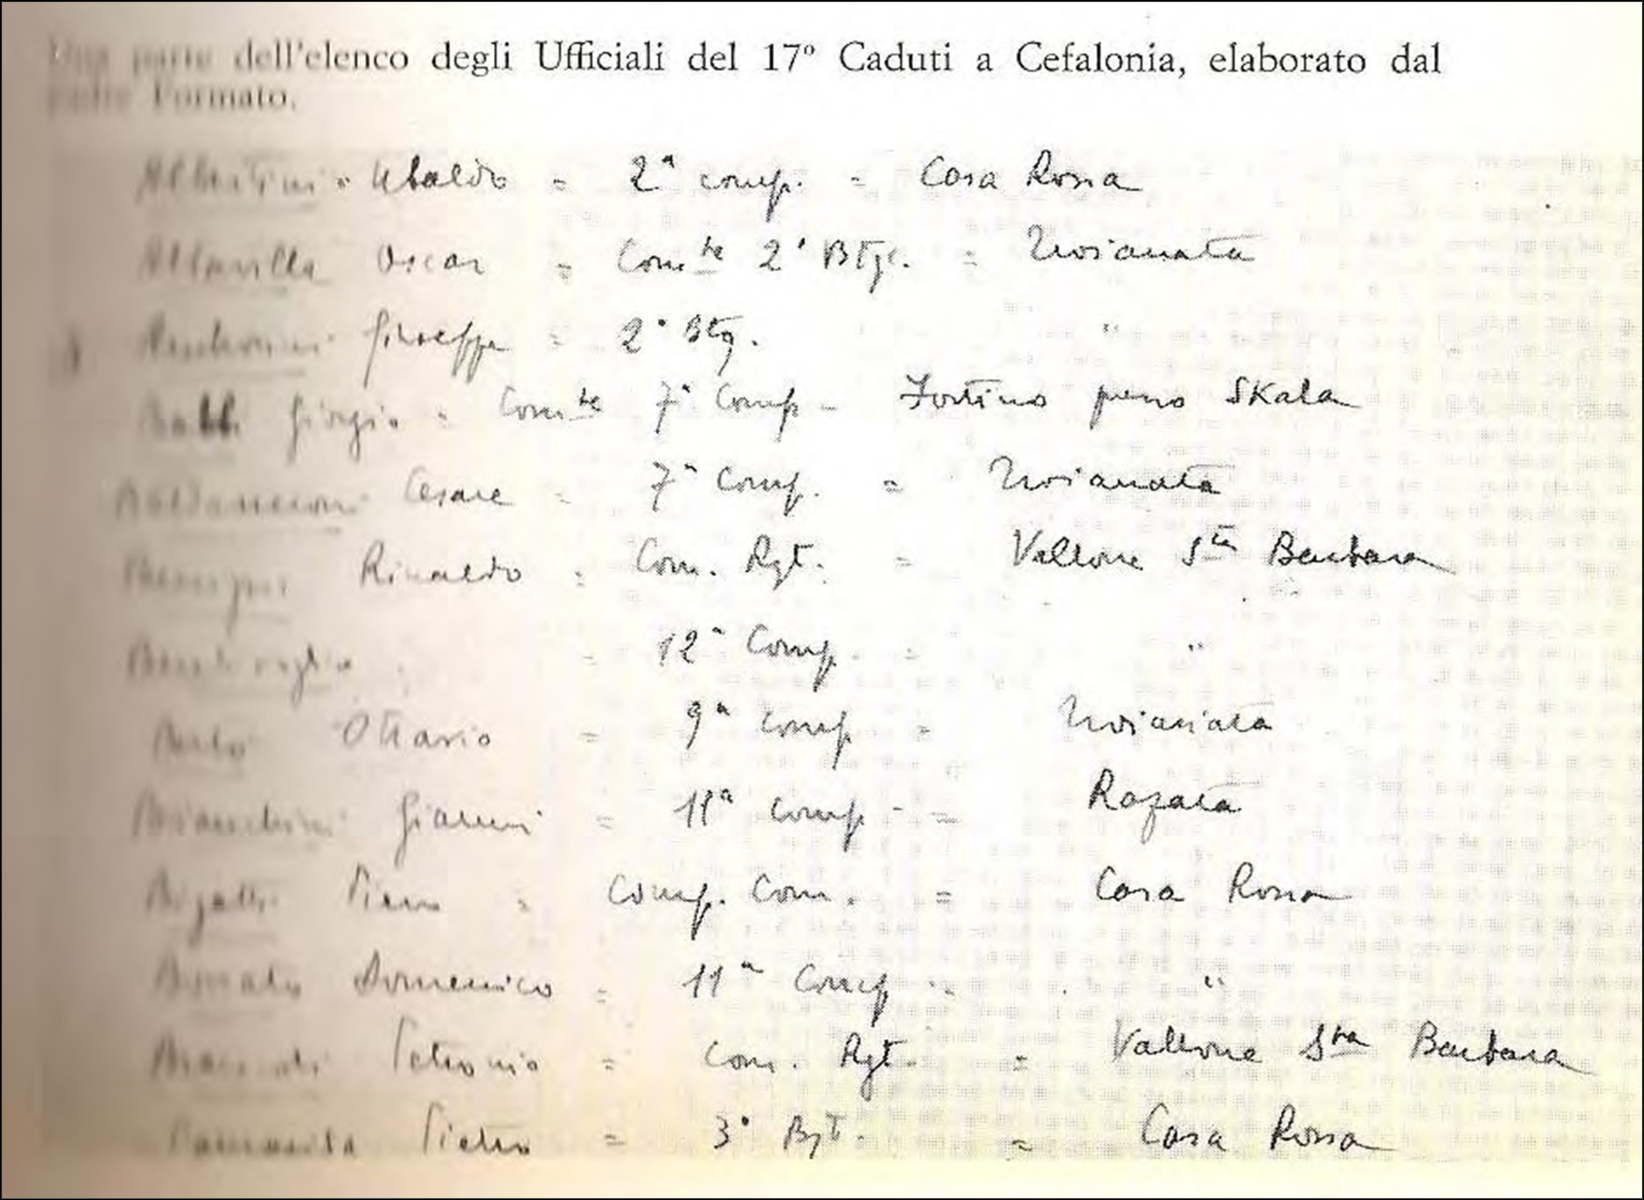 Una parte dell'elenco degli Ufficiali del 17° Caduti a Cefalonia, elaborato dal
padre Formato.
Albertini - Ubaldo = 2ª comp. = Casa Rossa
Altavilla Oscar = Com.te 2° Btg. = Troianata
Giuseppe = 2° Btg. "
Giorgio = Com.te 7ª Comp. - Fortino presso Skala
Cesare = 7ª Comp. = Troianata
Rinaldo = Com. Rgt. = Vallone S.ta Barbara
= 12ª Comp. = "
Ottavio = 9ª comp = Troianata
Bianchini Gianni = 11ª comp. = Razata
Bigatti Piero = Comp. Com. = Casa Rossa
Domenico = 11ª Comp - "
Petronio = Com. Rgt. = Vallone S.ta Barbara
Pietro = 3° Bgt. = Casa Rossa